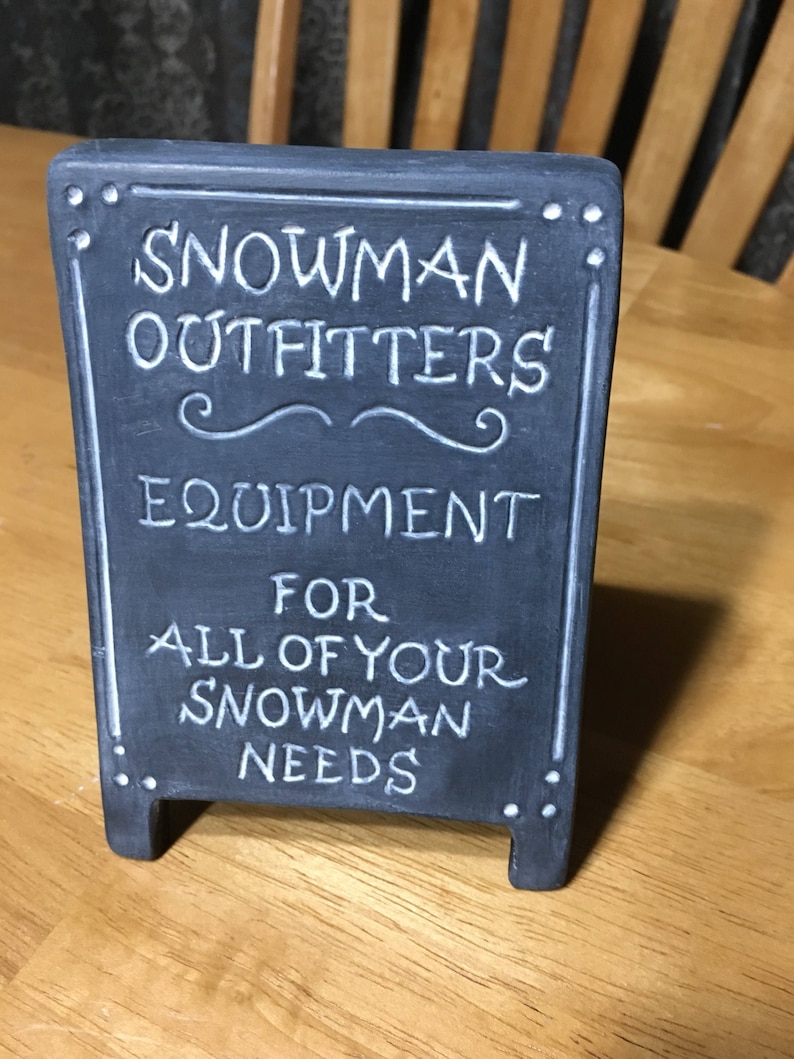 SNOWMAN
OUTFITTERS
EQUIPMENT
FOR
ALL OF YOUR
SNOWMAN
NEEDS